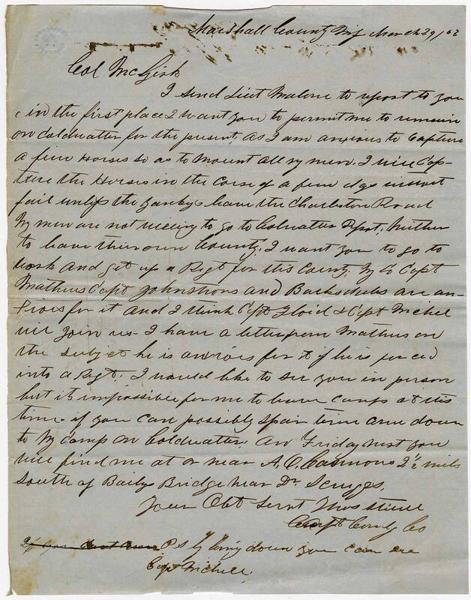 Marshall County Miss March 29/62
Col McGirk
I send Lieut Malone to report to you
in the first place I want you to permit me to remain
on Coldwater for the present As I am anxious to Capture
a few Horses so as to mount all my men. I will Cap-
ture the Horses in the Corse of a few dys
fail unless the Yankys leave the Charleston Road
My men are not willing to go to Coldwater Depot, Neither
to leave their own County. I want you to go to
work and get up a Regt for this County. My & Capt
Mathews Capt Johnstons and are an-
for it and I think Capt Floid & Capt Michel
will join us I have a letter from Mathews on
the subject he is anxios for it if he is forced
into a Regt. I would like to see you in person
but it impossible for me to leave camp at this
time if you can possibly spair time come down
to My camp on Coldwater. on Friday next you
will find me at or near A. C. Cannons 2½ mile
South of Baily Bridge near Dr Scruggs.
Your Obt Servt
Capt Comdg Co
P S By coming down you can see
Capt Michell